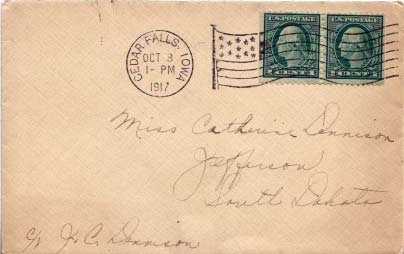 CEDAR FALLS, IOWA
OCT 8
1-PM
1917
U.S. POSTAGE
1 CENT 1
U.S. POSTAGE
1 CENT 1
Miss Catherine Dennison
Jefferson
South Dakota
c/o C. Dennison